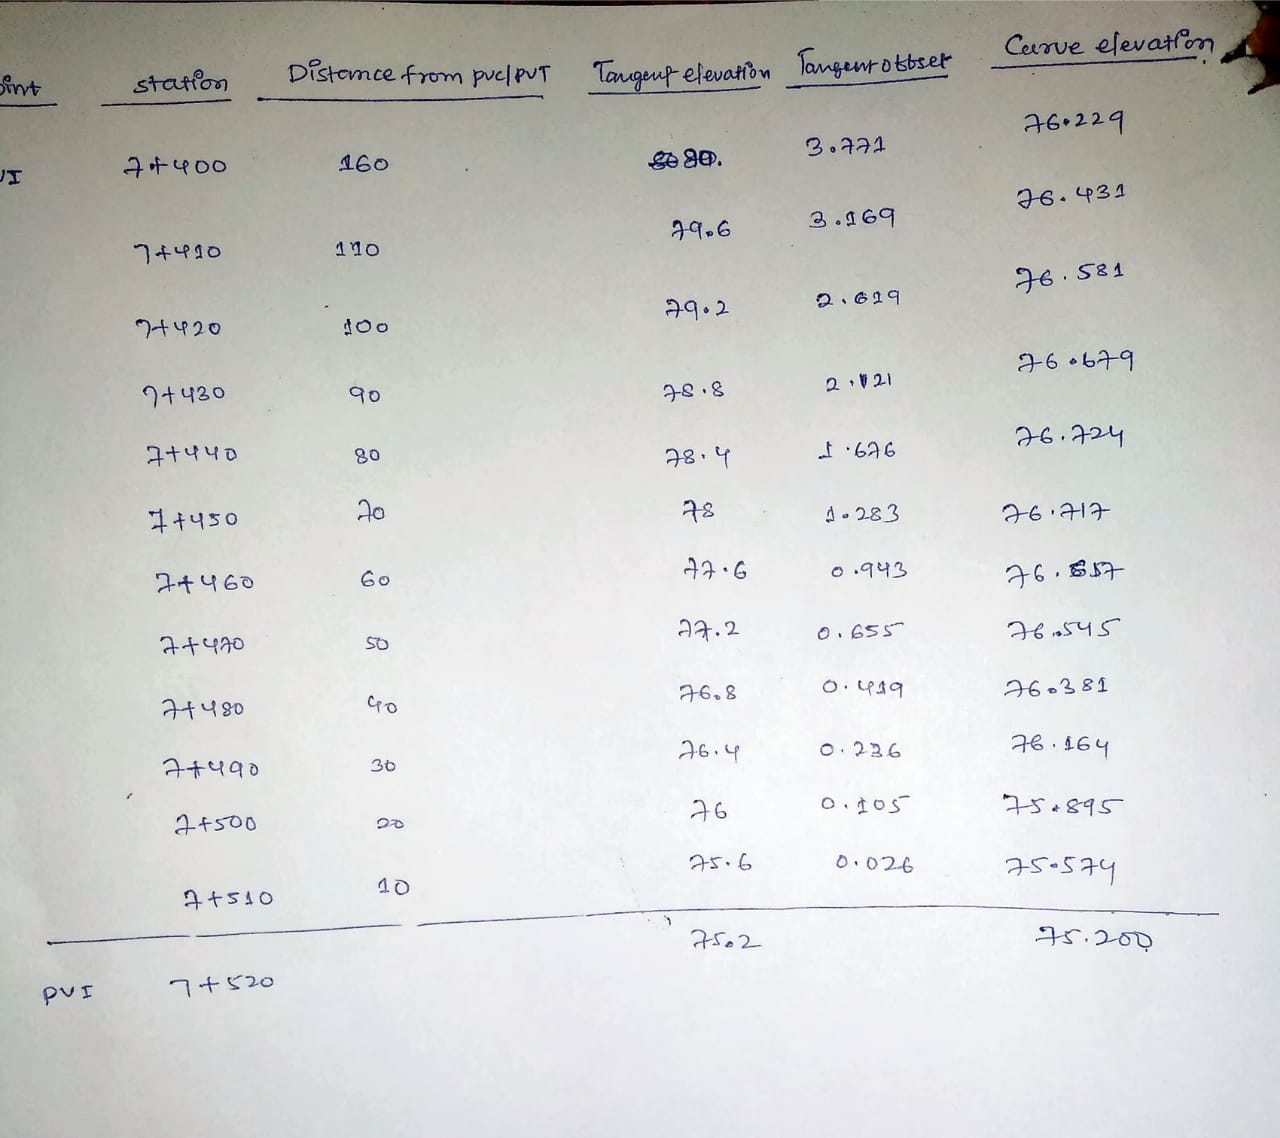 station Distance from pvc/pvT Tangent elevation Tangent obbset Curve elevation
7+400 160 80. 3.771 76.229
7+410 110 79.6 3.169 76.431
7+420 100 79.2 2.619 76.581
7+430 90 78.8 2.121 76.679
7+440 80 78.4 1.676 76.724
7+450 70 78 1.283 76.717
7+460 60 77.6 0.943 76.657
7+470 50 77.2 0.655 76.545
7+480 40 76.8 0.419 76.381
7+490 30 76.4 0.236 76.164
7+500 20 76 0.105 75.895
7+510 10 75.6 0.026 75.574
PVI 7+520 75.2 75.200